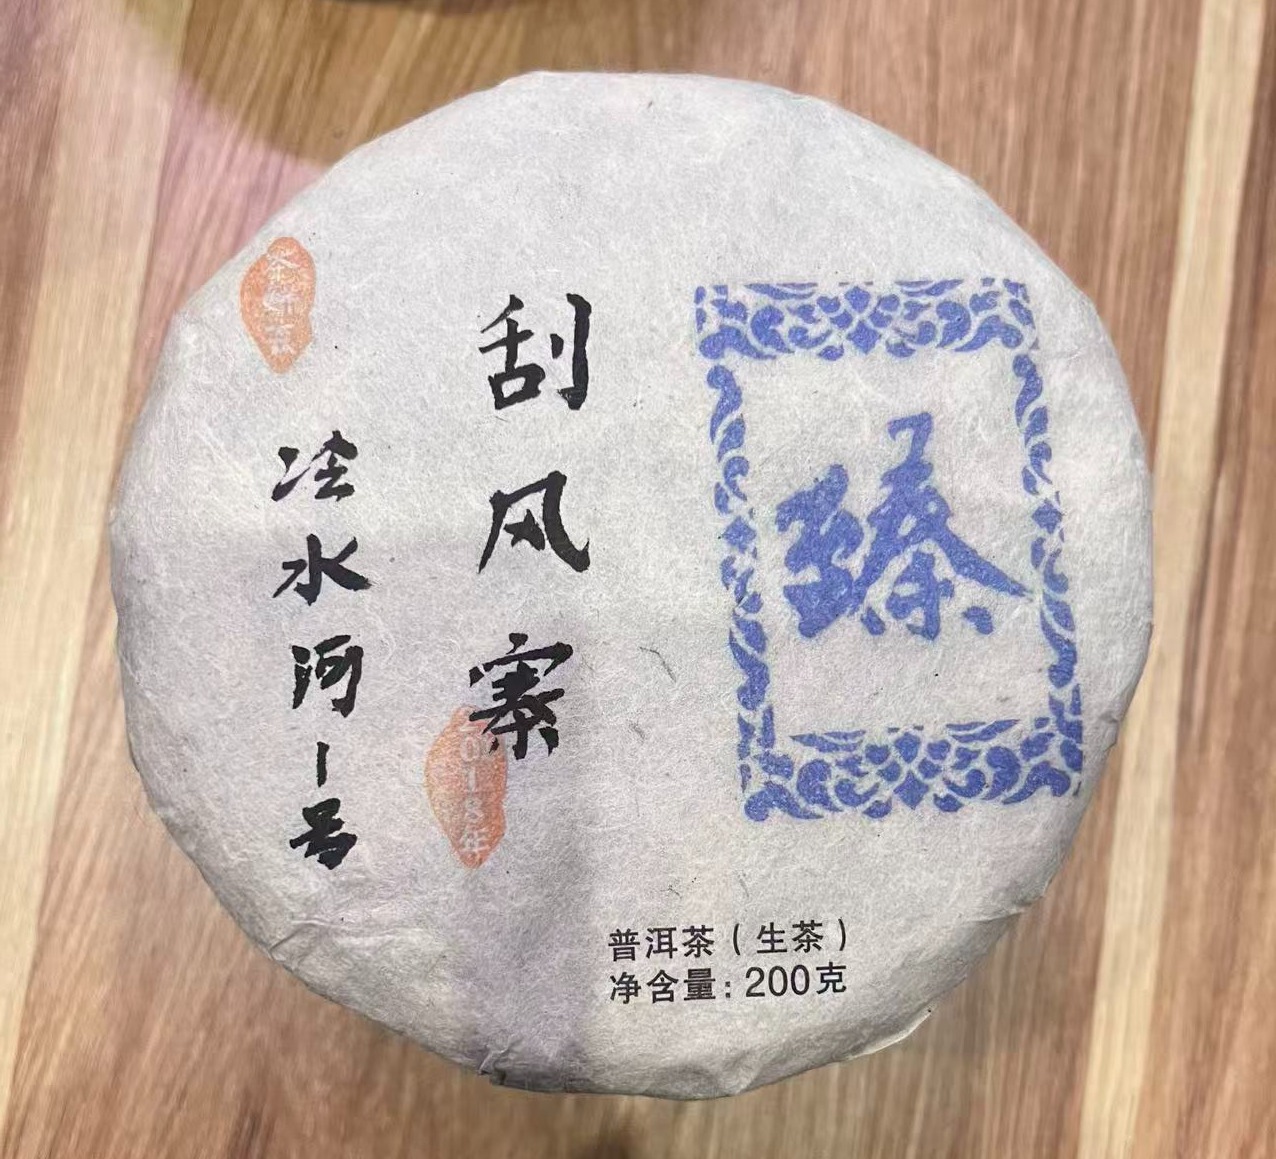 臻
刮风寨
2018年
冷水河1号
普洱茶（生茶）
净含量：200克